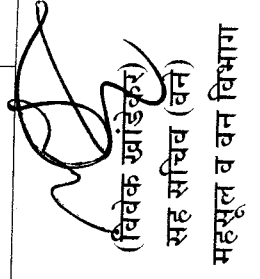 (विवेक खांडेकर)
सह सचिव (वने)
महसूल व वन विभाग